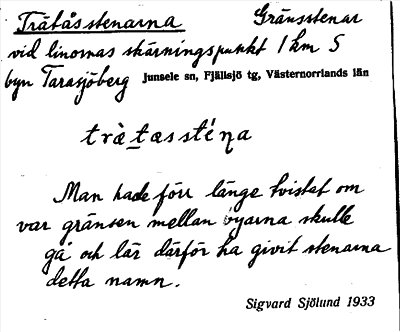 Trätåsstenarna Gränsstenar
vid linornas skärningspunkt 1 km S
byn Tarasjöberg Junsele sn, Fjällsjö tg, Västernorrlands län
trὰ̀tasstéṇa
Man hade förr länge tvistat om
var gränsen mellan byarna skulle
gå och lär därför ha givit stenarna
detta namn.
Sigvard Sjölund 1933